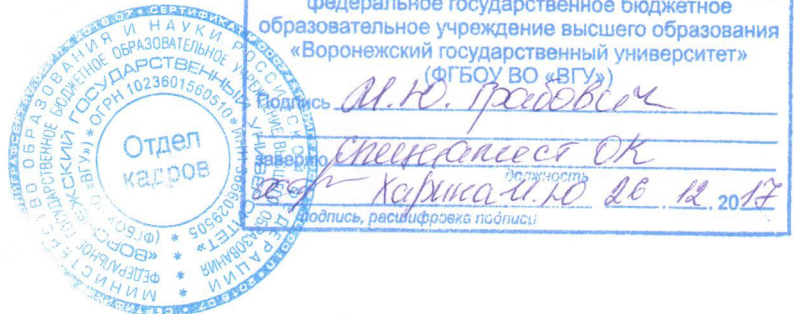 федеральное государственное бюджетное
образовательное учреждение высшего образования
«Воронежский государственный университет»
(ФГБОУ ВО «ВГУ»)
Подпись М.Ю. Грабович
заверяю специалист ОК
должность
Харина И.Ю 26 . 12 . 2017
подпись, расшифровка подписи
МИНИСТЕРСТВО ОБРАЗОВАНИЯ И НАУКИ РОССИЙСКОЙ ФЕДЕРАЦИИ
ФЕДЕРАЛЬНОЕ ГОСУДАРСТВЕННОЕ БЮДЖЕТНОЕ ОБРАЗОВАТЕЛЬНОЕ УЧРЕЖДЕНИЕ ВЫСШЕГО ОБРАЗОВАНИЯ
«ВОРОНЕЖСКИЙ ГОСУДАРСТВЕННЫЙ УНИВЕРСИТЕТ»
(ФГБОУ ВО «ВГУ») * ОГРН 1023601560510 * ИНН 3666029505 *
Отдел
кадров